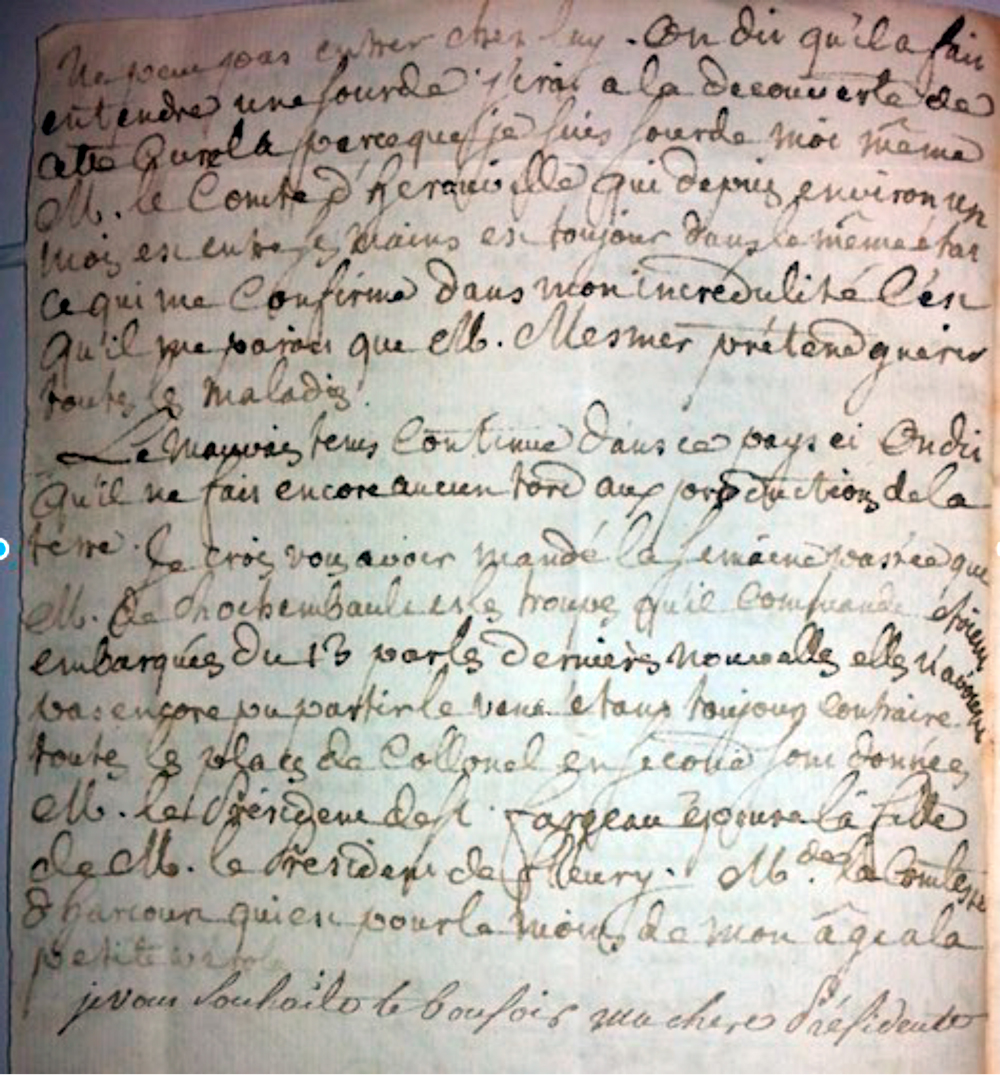 ne peut pas entrer chez luy. On dit qu'il a fait
entendre une sourde j'irai a la decouverte de
cette parce que je suis sourde moi même
M. le Comte d'herouville qui depuis environ un
mois est entre ses mains est toujour dans le même état
ce qui me Confirme dans mon incredulité C'est
qu'il me parait que M. Mesmer prétend guerir
toutes les maladies
Le mauvais tems Continue dans ce pays ci On dit
qu'il ne fait encore aucun tord aux productions de la
terre. Je crois vous avoir mandé la semaine passée que
M. de Rochembault et les troupes qu'il Commande étoient
embarquées du 13 par les dernieres nouvelles elles n'avoient
pas encore pu partir le vent étant toujour contraire
toutes les places de Collonel en second sont données
M. le Président de St. fargeau épouse la fille
de M. le President de fleury. M.de la Comtesse
d'harcourt qui est pour le moins de mon âge a la
petite verole
je vous souhaite le bonsoir ma chere Présidente